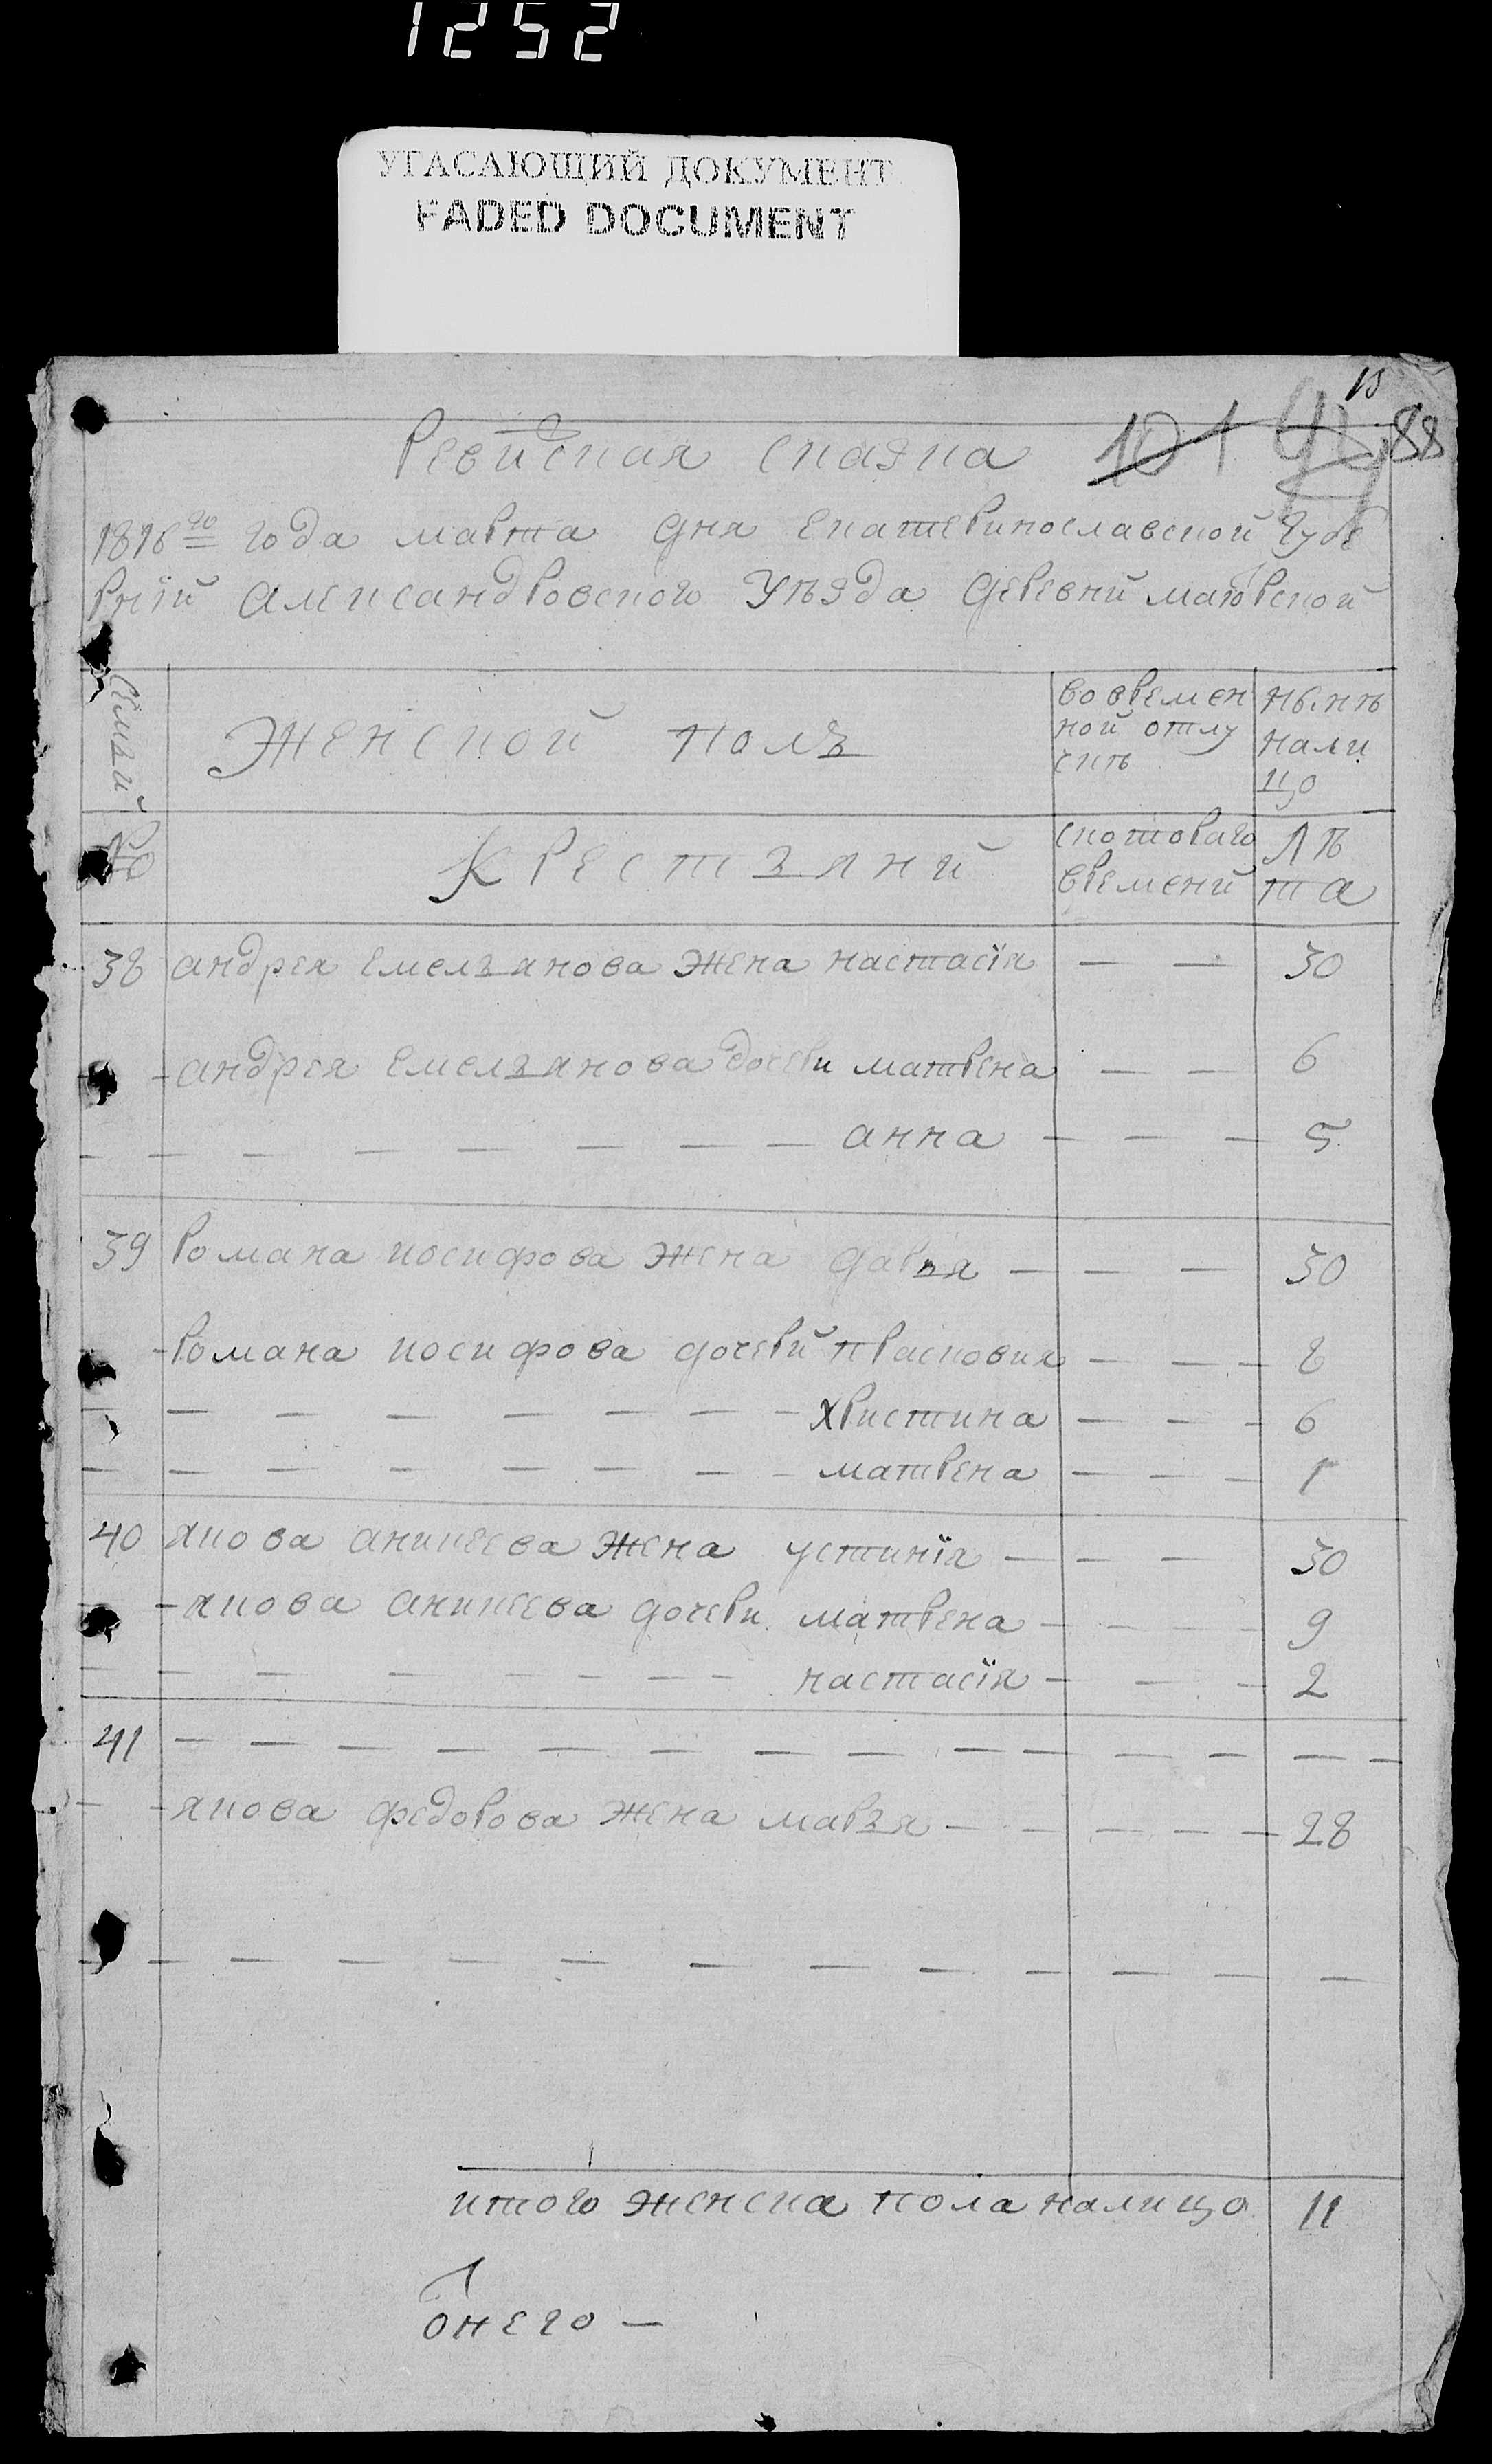 1252
УГАСАЮЩИЙ ДОКУМЕНТ
FADED DOCUMENT
15
Ревиская сказка 101 88
1816го года марта дня екатеринославской губе
рнїй александровского уѣзда деревнй маю̂рской
Семьй Женской полъ во времен ной отлу чик нынѣ нали цо
№ Крестьянй скотораго временй лѣ та
38 андрея емельянова жена настасїя — — 30
андрея емельянова дочери матрена — — 6
— — — — — — — — анна — — — 5
39 романа иосифова жена дарья — — — 30
романа иосифова дочерй прасковия — — — 8
— — — — — — — — христина — — — 6
— — — — — — — — матрена — — — 1
40 якова аникеева жена устинїя — — — 30
якова аникеева дочери матрена — — — — 9
— — — — — — — — настасїя — — — 2
41 — — — — — — — — — — — — — —
якова федорова жена марья — — — — — 28
— — — — — — — — — — — — —
итого женска пола налицо 11
онего —